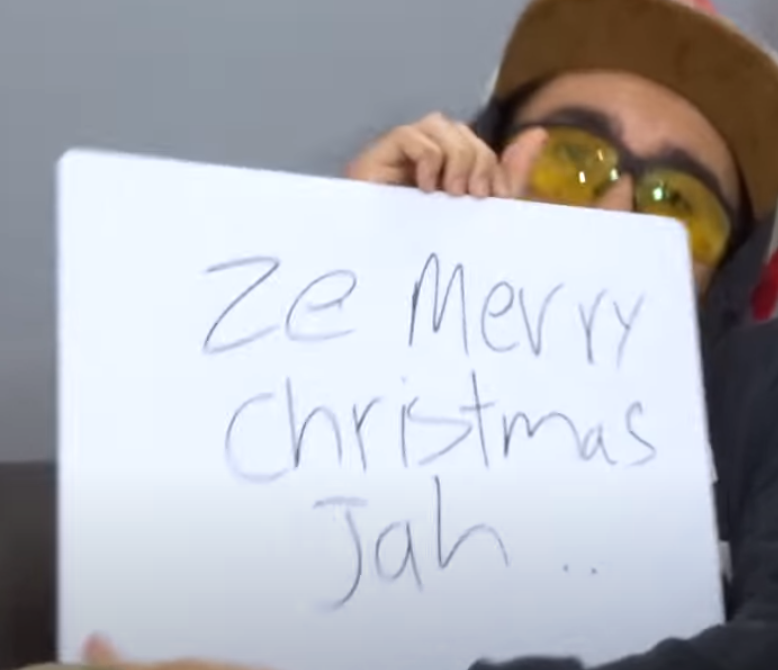 Ze Merry
Christmas
Jah ..